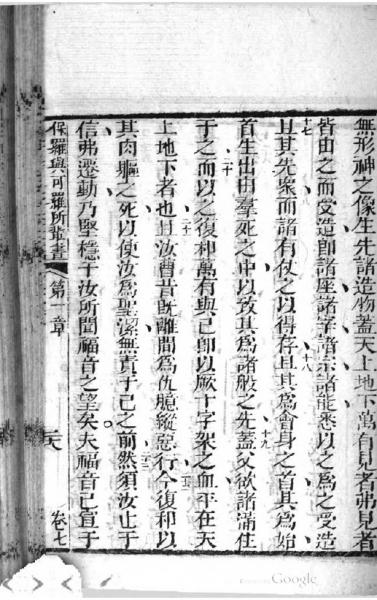 無形神之像生先諸造物蓋天上地下萬有見者弗見者
皆由之而受造即諸座諸宰諸宗諸能悉以之爲之受造
十七
十八
且其先衆而諸有仗之以得存且其爲會身之首其爲始
十九
首生出由羣死之中以致其爲諸般之先蓋父欲諸滿住
二十
于之而以之復和萬有與己即以厥十字架之血平在天
上地下者也且汝曹昔既離間爲仇臆縱惡行今復和以
二一
二二
其肉軀之死以使汝爲聖潔無責于己之前然須汝止于
二三
信弗遷動乃堅穩于汝所聞福音之望矣夫福音已宣于
保羅與可羅所輩書
第一章
卷七
Google